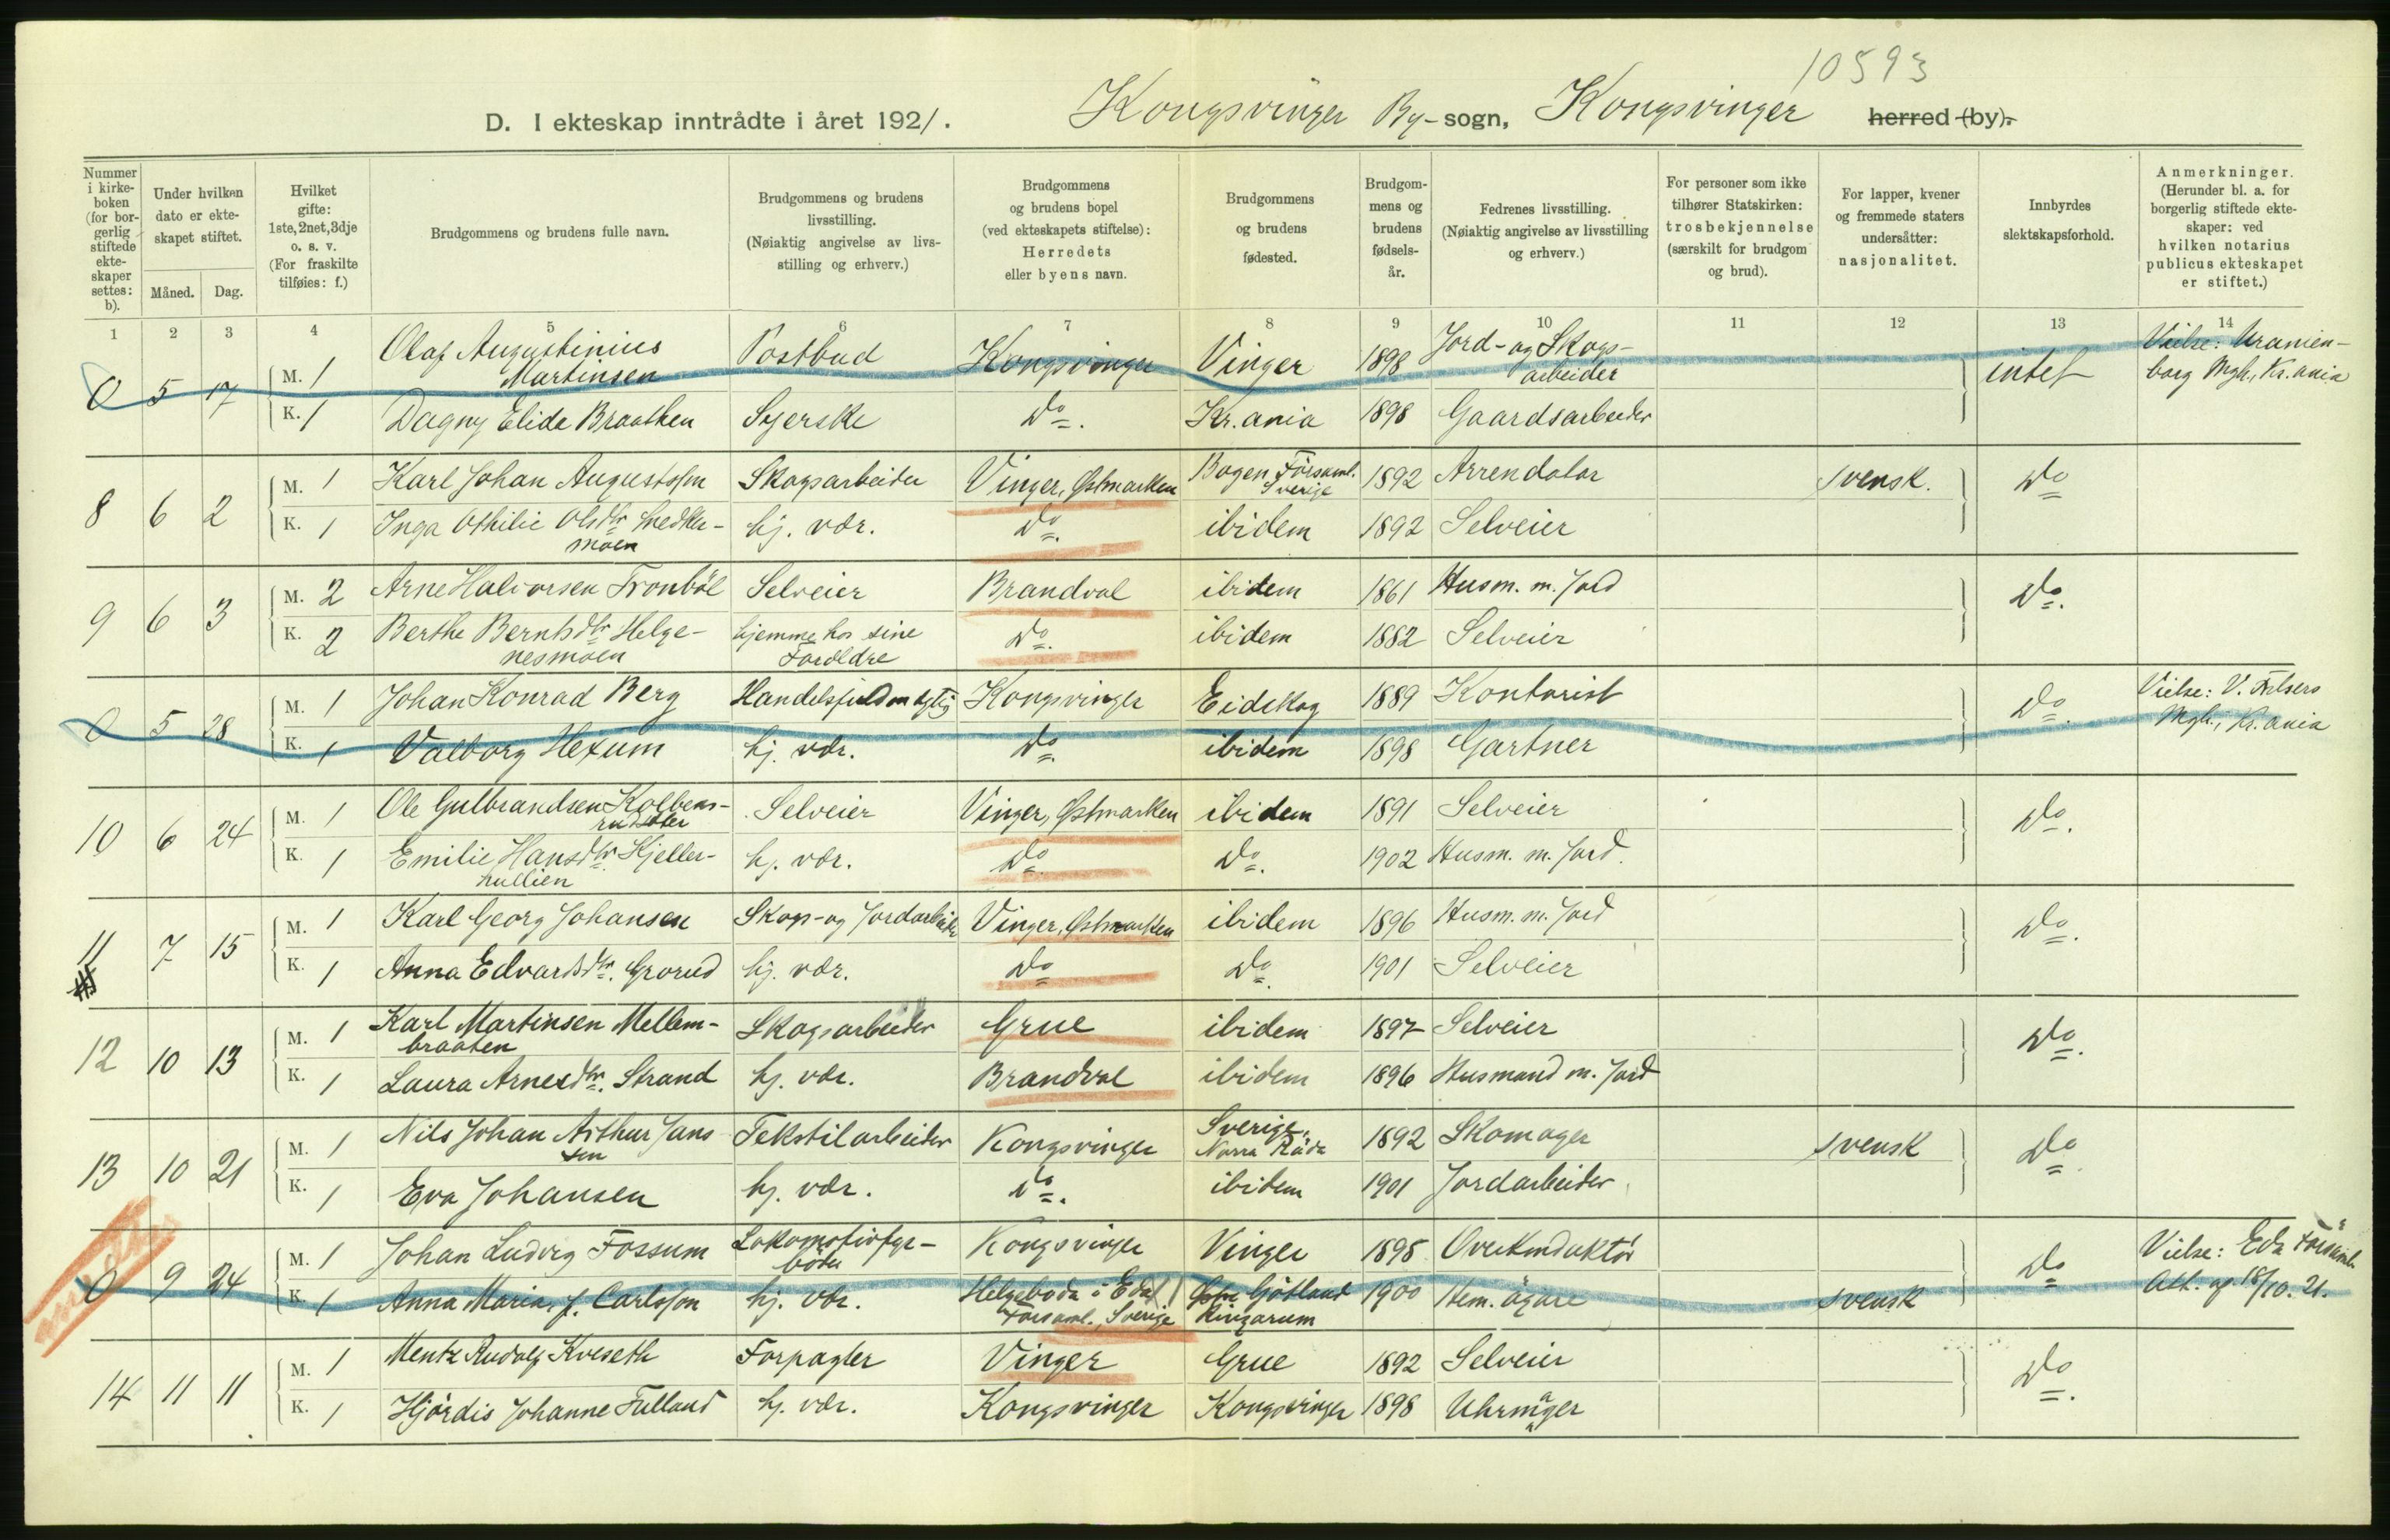 10593
D. I ekteskap inntrådte i året 1921. Kongsvinger By- sogn, Kongsvinger herred (by).
Nummer i kirkeboken (for borgerlig stiftede ekteskaper settes: b).
Under hvilken dato er ekteskapet stiftet.
Måned. Dag.
Hvilket gifte: 1ste, 2net, 3dje o. s. v. (For fraskilte tilføies: f.)
Brudgommens og brudens fulle navn.
Brudgommens og brudens livsstilling. (Nøiaktig angivelse av livsstilling og erhverv.)
Brudgommens og brudens bopel (ved ekteskapets stiftelse): Herredets eller byens navn.
Brudgommens og brudens fødested.
Brudgommens og brudens fødselsår.
Fedrenes livsstilling. (Nøiaktig angivelse av livsstilling og erhverv.)
For personer som ikke tilhører Statskirken: trosbekjennelse (særskilt for brudgom og brud).
For lapper, kvener og fremmede staters undersåtter: nasjonalitet.
Innbyrdes slektskapsforhold.
Anmerkninger. (Herunder bl. a. for borgerlig stiftede ekteskaper: ved hvilken notarius publicus ekteskapet er stiftet.)
1 2 3 4 5 6 7 8 9 10 11 12 13 14
0 5 17 M. 1 Olaf Augustinius Martinsen Postbud Kongsvinger Vinger 1898 Jord- og Skogsarbeider intet Vielse: Uranienborg Mgh., Kr.ania
K. 1 Dagny Elida Braathen Syerske Do. Kr.ania 1898 Gaardsarbeider
8 6 2 M. 1 Karl Johan Augustsson Skogsarbeider Vinger, Østmarken Bogen Församl. Sverige 1892 Arrendator svensk. Do
K. 1 Inga Othilie Olsdtr. hj. vær. Do. ibidem 1892 Selveier
9 6 3 M. 2 Arne Halvorsen Tronbøl Selveier Brandval ibidem 1861 Husm. m. Jord Do.
K. 2 Berthe Berntsdtr. Helgenesmoen hjemme hos sine Foreldre Do. ibidem 1882 Selveier
0 5 28 M. 1 Johan Konrad Berg Handelsfuldmægtig Kongsvinger Eidskog 1889 Kontorist Do. Vielse: V. Frelsers Mgh., Kr.ania
K. 1 Valborg Hexum hj. vær. Do. ibidem 1898 Gartner
10 6 24 M. 1 Ole Gulbrandsen Selveier Vinger, Østmarken ibidem 1891 Selveier Do.
K. 1 Emilie Hansdtr. Kjellerhullien hj. vær. Do. Do. 1902 Husm. m. Jord.
11 7 15 M. 1 Karl Georg Johansen Skogs- og Jordarbeider Vinger, Østmarken ibidem 1896 Husm. m. Jord Do.
K. 1 Anna Edvardsdtr. Grorud hj. vær. Do Do. 1901 Selveier
12 10 13 M. 1 Karl Martinsen Mellembraaten Skogsarbeider Grue ibidem 1897 Selveier Do.
K. 1 Laura Arnesdtr. Strand hj. vær. Brandval ibidem 1896 Husmand m. Jord
13 10 21 M. 1 Nils Johan Arthur Janssen Tekstilarbeider Kongsvinger Sverige, Norra Råda 1892 Skomager svensk Do.
K. 1 Eva Johansen hj. vær. Do. ibidem 1901 Jordarbeider
0 9 24 M. 1 Johan Ludvig Fossum Lokomotivfyrbøter Kongsvinger Vinger 1895 Overkonduktør Do Vielse: Eda Församl. Att. af 18/10. 21.
K. 1 Anna Maria f. Carlsson hj. vær. Helgeboda i Eda Församl., Sverige Götland Ringarum 1900 Hem. ägare svensk
14 11 11 M. 1 Mentz Rudolf Kveseth Forpagter Vinger Grue 1892 Selveier Do.
K. 1 Hjørdis Johanne Fulland hj. vær. Kongsvinger Kongsvinger 1898 Uhrmager